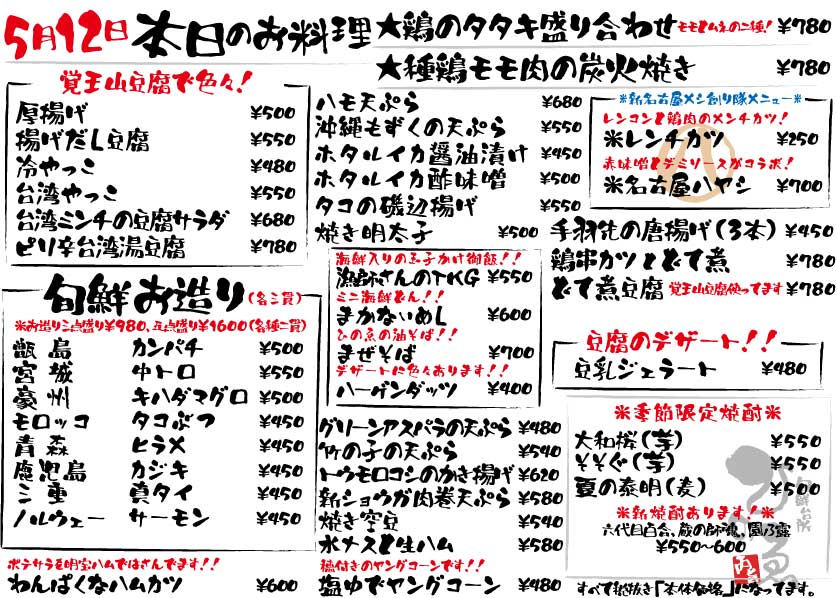 5月12日 本日のお料理
★鶏のタタキ盛り合わせ モモとムネの二種! ¥780
★種鶏モモ肉の炭火焼き ¥780
覚王山豆腐で色々!
厚揚げ ¥500
揚げだし豆腐 ¥550
冷やっこ ¥480
台湾やっこ ¥550
台湾ミンチの豆腐サラダ ¥680
ピリ辛台湾湯豆腐 ¥780
旬鮮お造り(名二貫)
※お造り三点盛り¥980、五点盛り¥1600(各種二貫)
甑島 カンパチ ¥500
宮城 中トロ ¥550
豪州 キハダマグロ ¥500
モロッコ タコぶつ ¥450
青森 ヒラメ ¥450
鹿児島 カジキ ¥450
三重 真タイ ¥450
ノルウェー サーモン ¥450
ポテサラと明宝ハムではさんでます!!
わんぱくなハムカツ ¥600
ハモ天ぷら ¥680
沖縄もずくの天ぷら ¥550
ホタルイカ醤油漬け ¥450
ホタルイカ酢味噌 ¥500
タコの磯辺揚げ ¥550
焼き明太子 ¥500
海鮮入りの玉子かけ御飯!!
漁師さんのTKG ¥550
ミニ海鮮どん!!
まかないめし ¥600
ひの魚の油そば!!
まぜそば ¥700
デザートに色々あります!!
ハーゲンダッツ ¥400
グリーンアスパラの天ぷら ¥480
竹の子の天ぷら ¥540
トウモロコシのかき揚げ ¥620
新ショウガ肉巻天ぷら ¥580
焼き空豆 ¥540
水ナスと生ハム ¥580
穂付きのヤングコーンです!!
塩ゆでヤングコーン ¥480
※新名古屋メシ創り隊メニュー※
レンコンと鶏肉のメンチカツ!
※レンチカツ ¥250
赤味噌とデミソースがコラボ!
※名古屋ハヤシ ¥700
手羽先の唐揚げ(3本) ¥450
鶏串カツとどて煮 ¥780
どて煮豆腐 覚王山豆腐使ってます ¥780
豆腐のデザート!!
豆乳ジェラート ¥480
※季節限定焼酎※
大和桜(芋) ¥550
そそぐ(芋) ¥550
夏の泰明(麦) ¥500
※新焼酎あります!※
六代目百合、蔵の師魂、園乃露
¥550~600
海鮮台所
すべて税抜き「本体価格」になってます。